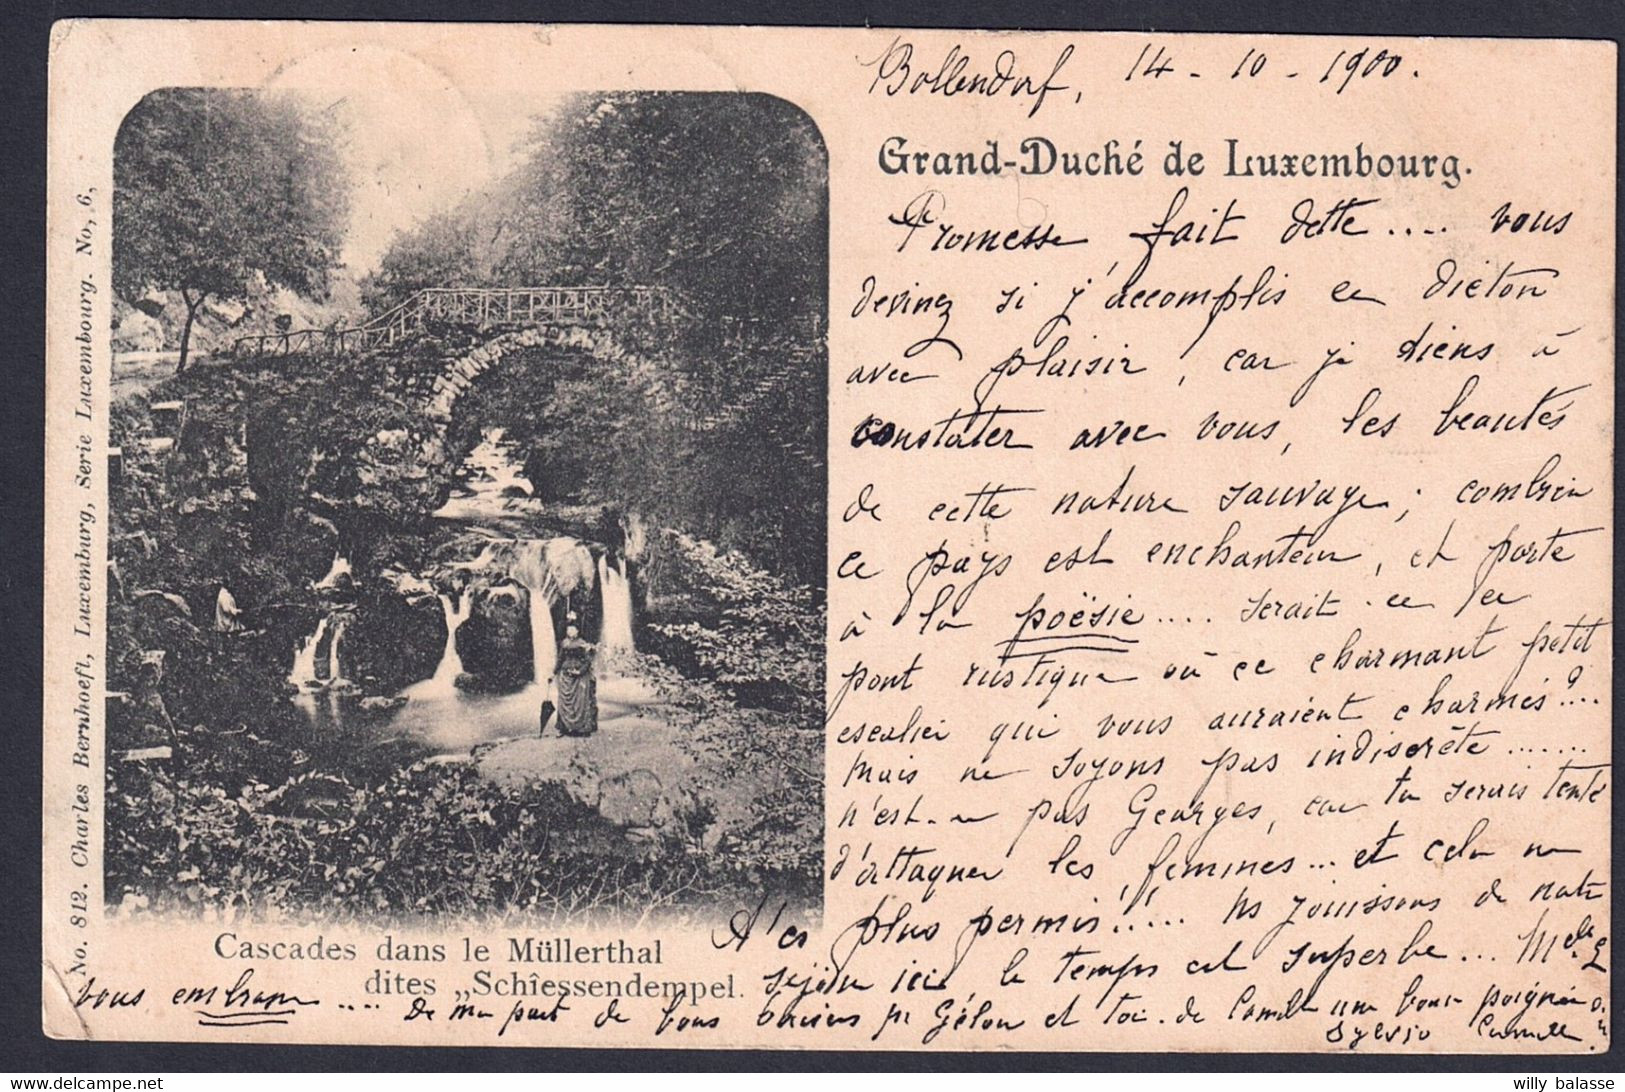 Bollendorf, 14 - 10 - 1900.
Grand-Duché de Luxembourg.
Promesse fait dette .... vous
devinez si j'accomplis ce dicton
avec plaisir, car je tiens à
constater avec vous, les beautés
de cette nature sauvage; combien
ce pays est enchanteur, et porte
à la poësie .... serait-ce le
pont rustique où ce charmant petit
escalier qui vous auraient charmés? ...
Mais ne soyons pas indiscrète .......
n'est-ce pas Georges, car tu serais tenté
d'attaquer les femmes ... et cela ne
t'es plus permis!!.... Ns jouissons de notre
séjour ici, le temps est superbe ... Melle
vous embrasse .... De ma part de bons baisers pr et toi. de Camille une bonne poignée
Sylvio Camille
Cascades dans le Müllerthal
dites „Schîessendempel.
No. 812. Charles Bernhoeft, Luxemburg, Serie Luxembourg. No, 6,
willy balasse